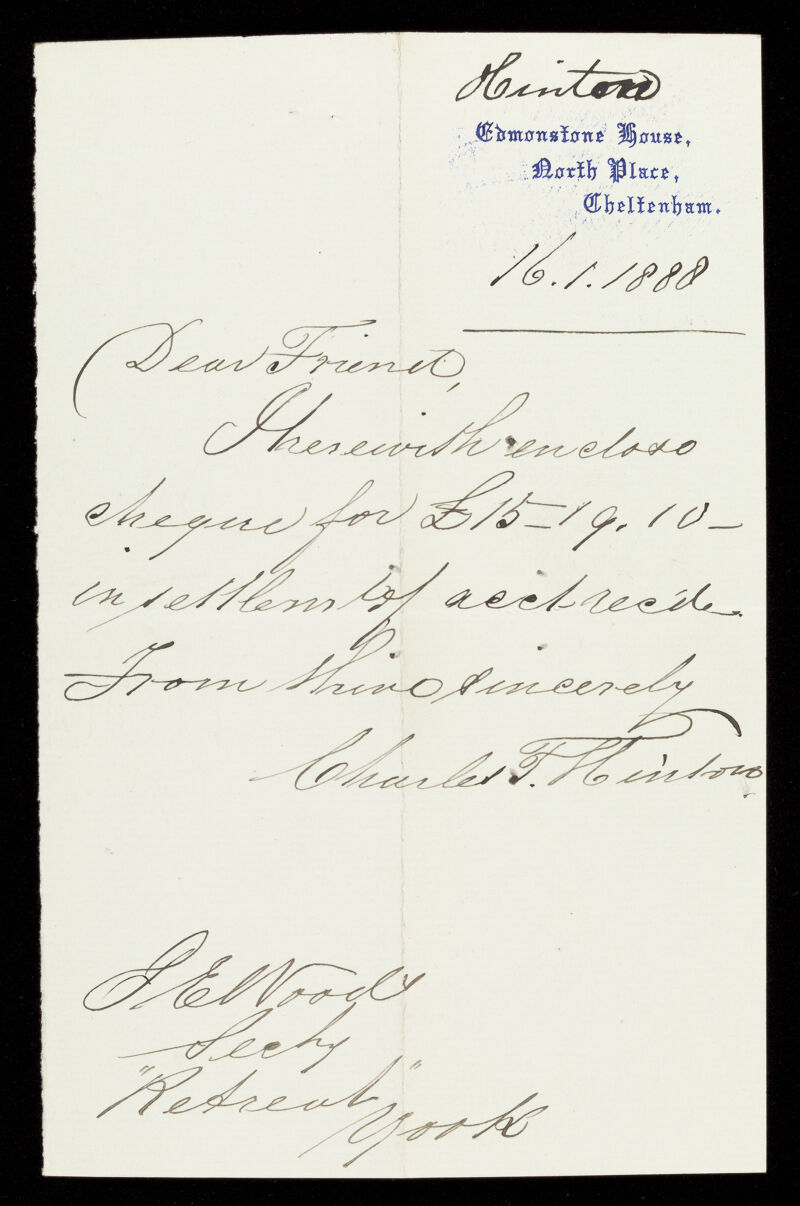 Hinton
Edmonstone House,
North Place,
Cheltenham.
16.1.1888
Dear Friend,
I herewith enclose
cheque for £15-19.10-
in settlemt of acct recd.
From thine sincerely
Charles F. Hinton
Woods
Secty
"Retreat"
York